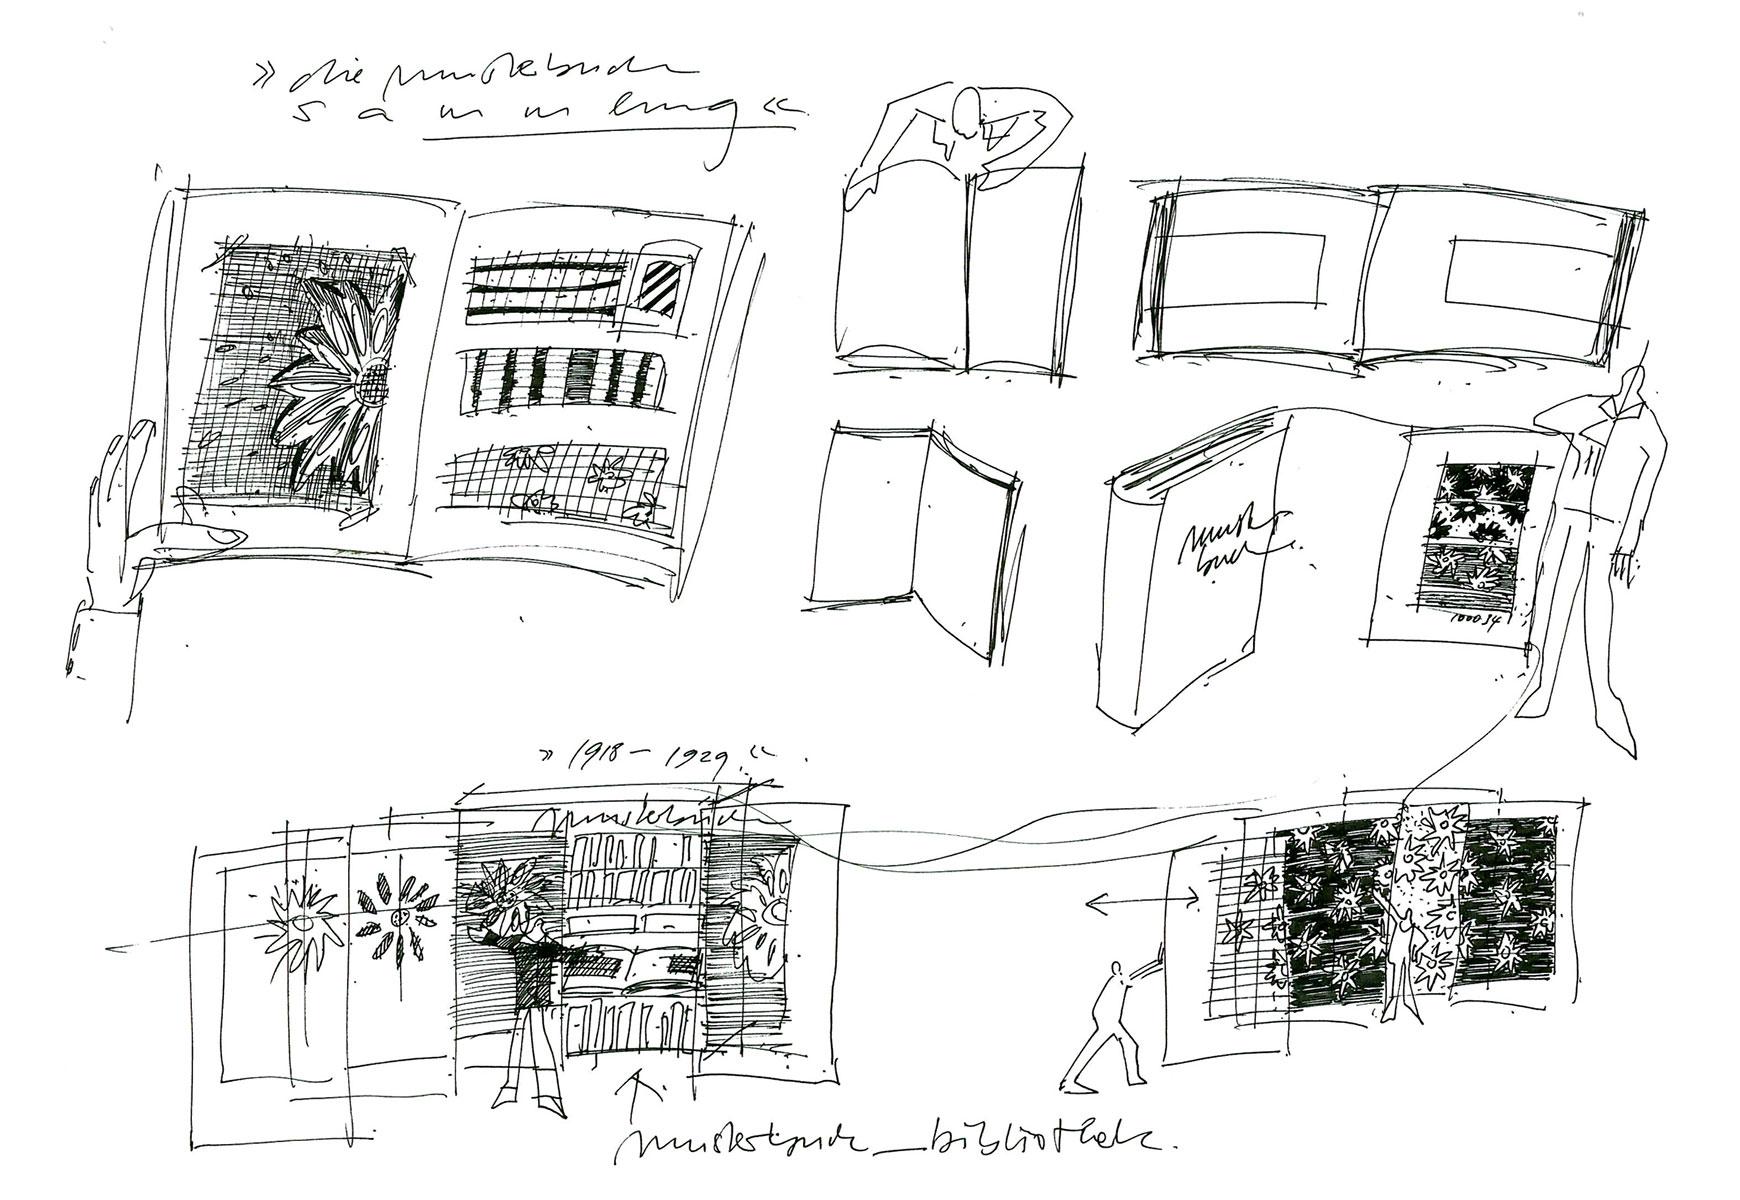 » die musterbuch
sammlung «
muster
buch
100054
» 1918 – 1929 «
musterbuch
musterbuch_bibliothek.